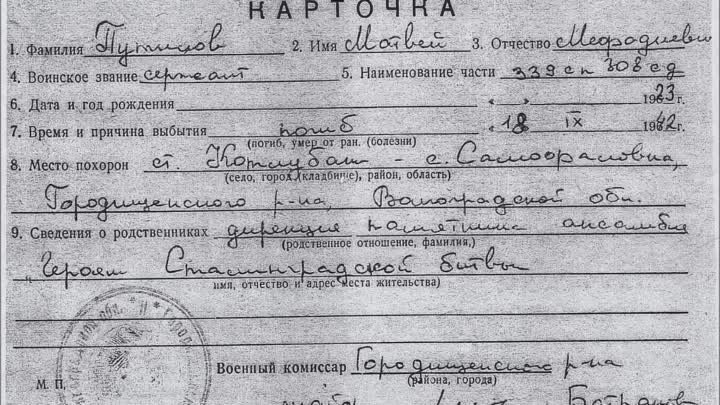 КАРТОЧКА
1. Фамилия Путинов 2. Имя Матвей 3. Отчество Мефодиевич
4. Воинское звание сержант 5. Наименование части 339 сп 308 сд
6. Дата и год рождения « » 1923 г.
7. Время и причина выбытия погиб « 18 » IX 1942 г.
(погиб, умер от ран. (болезни)
8. Место похорон ст. Котлубань - с. Самофаловка,
(село, город (кладбище), район, область)
Городищенского р-на, Волгоградской обл.
9. Сведения о родственниках дирекция памятника ансамбля
(родственное отношение, фамилия,)
"Героям Сталинградской битвы
имя, отчество и адрес места жительства)
Военный комиссар Городищенского р-на
М. П. (района, города)